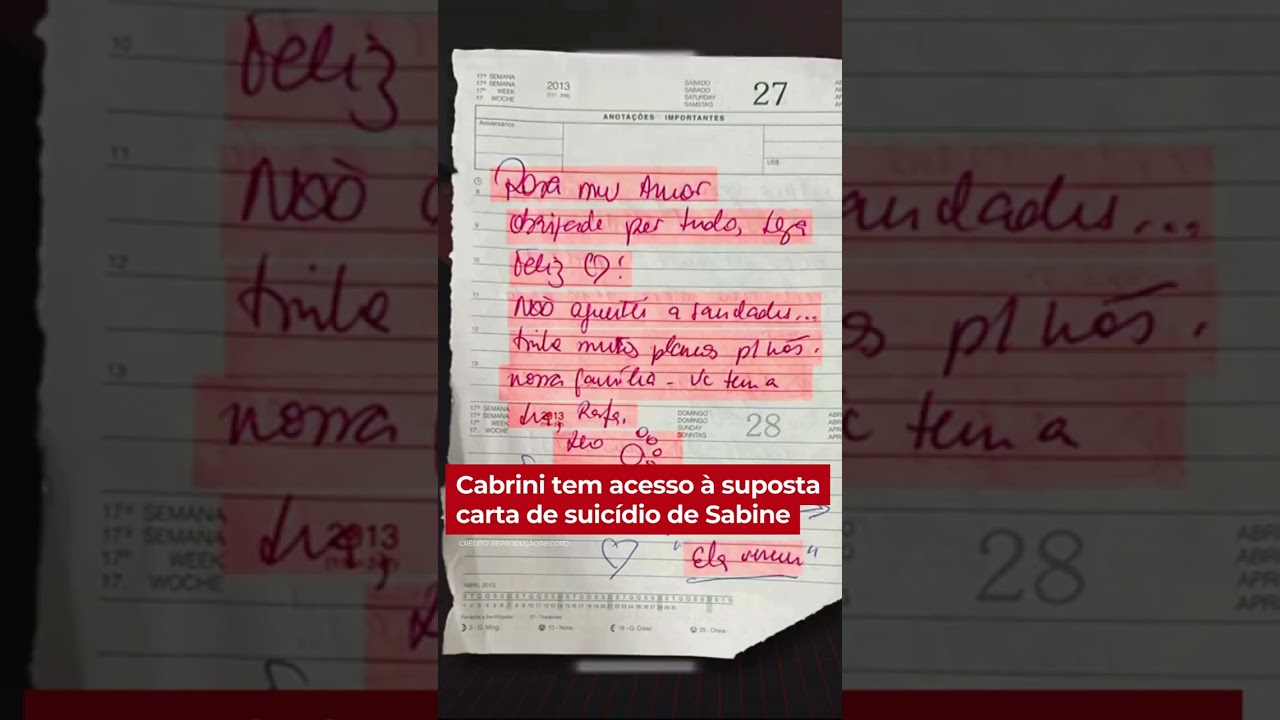 17ª SEMANA
17ª SEMANA
17th WEEK
17. WOCHE
2013
SÁBADO
SÁBADO
SATURDAY
SAMSTAG
27
ANOTAÇÕES IMPORTANTES
Aniversários
US$
Para meu Amor
obrigada por tudo, seja
feliz ♡!
Não aguentei a saudades...
tinha muitos planos p/ nós.
nossa família - vc tem a
Rafa,
Leo
17ª SEMANA
17ª SEMANA
2013
DOMINGO
DOMINGO
SUNDAY
SONNTAG
28
Cabrini tem acesso à suposta
carta de suicídio de Sabine
CRÉDITO: REPRODUÇÃO/RECORD
"Ela venceu"
ABRIL 2013